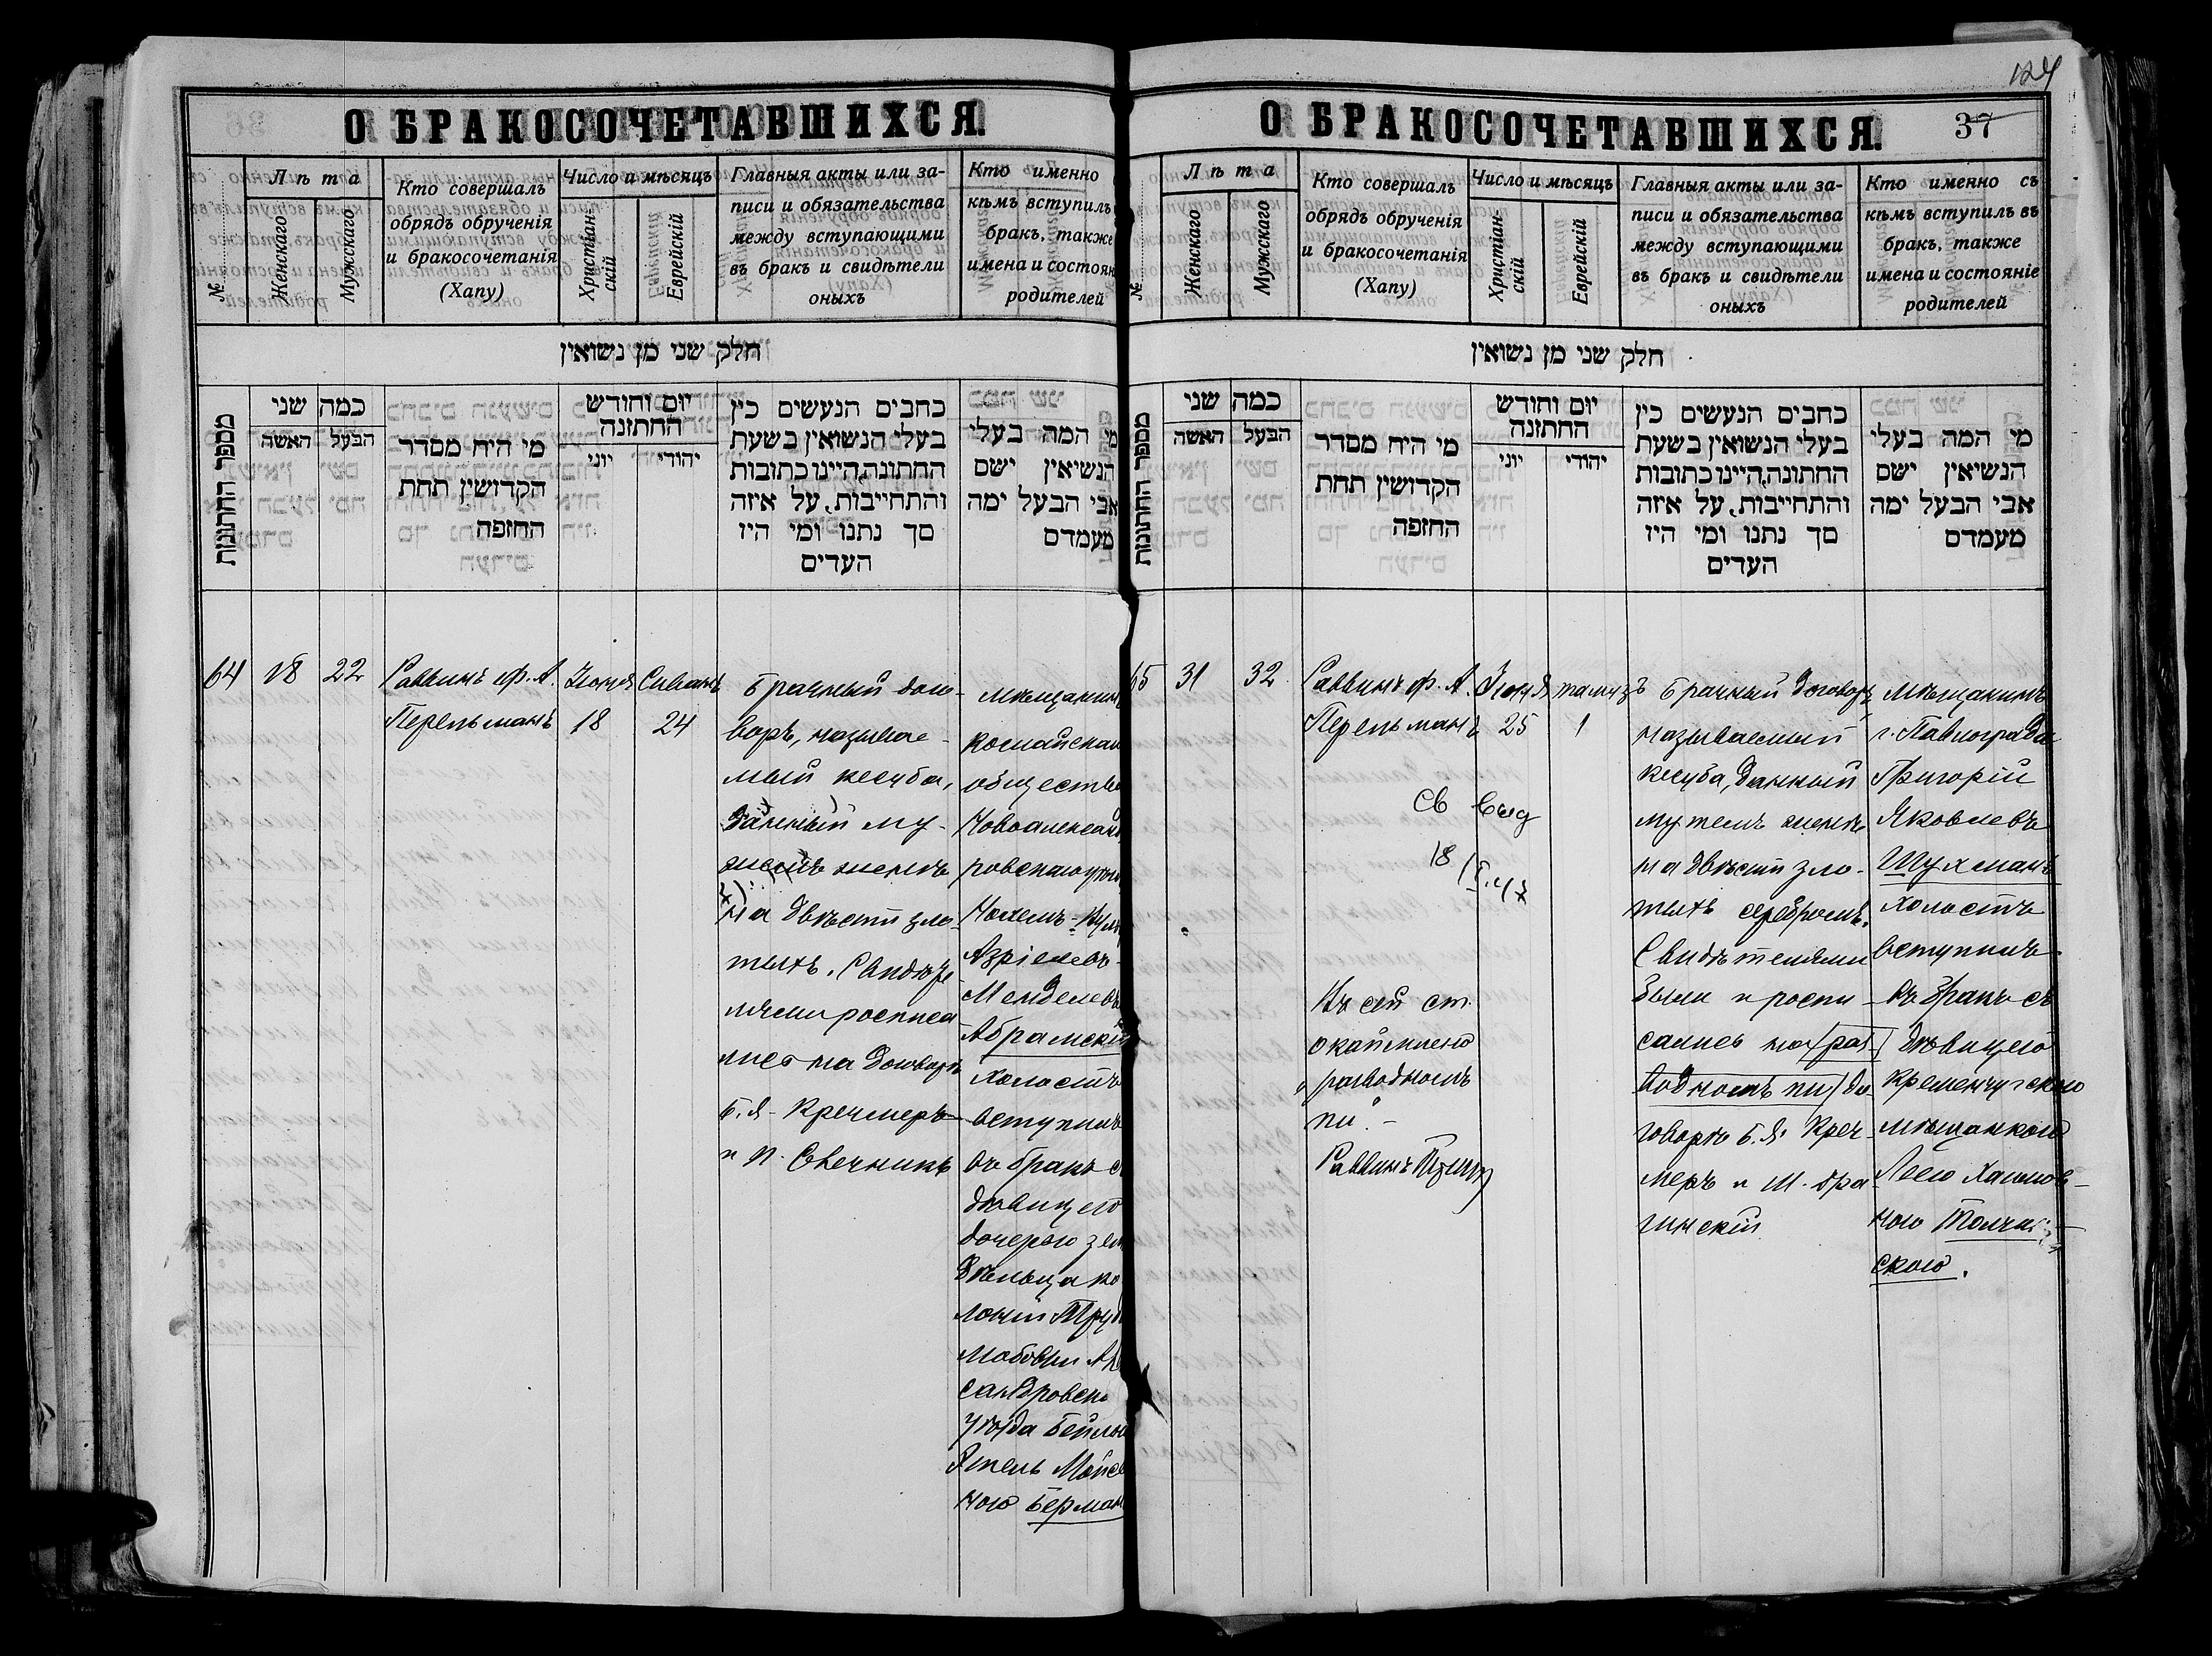 О БРАКОСОЧЕТАВШИХСЯ.
№
Лѣта
Женскаго
Мужскаго
Кто совершалъ
обрядъ обрученія
и бракосочетанія
(Хапу)
Число и мѣсяцъ
Христіан-
скій
Еврейскій
Главныя акты или за-
писи и обязательства
между вступающими
въ бракъ и свидѣтели
оныхъ
Кто именно
кѣмъ вступилъ
бракъ, также
имена и состоян
родителей
חלק שני מן נשואין
מספר החתונות
כמה שני
האשה
הבעל
מי היח מסדר
הקדושין תחת
החופה
יום וחודש
החתונה
יוני
יהודי
כחבים הנעשים כין
בעלי הנשואין בשעת
החתונה, היינו כתובות
והתחייבות, על איזה
סך נתנו ומי היו
העדים
מי המה בעלי
הנשיאין ישם
אבי הבעל ימה
מעמדם
64
18
22
Раввинъ еф. А.
Перельманъ
Іюня
18
Сиванъ
24
Брачный дого-
воръ, называе-
мый кесуба,
данный му-
жемъ женѣ
на двѣсти зло-
тыхъ. Свидѣте
лями росписа
лись на договорѣ
Б. Я. Кречмеръ
и И. Свечникъ
мѣщанин
общества
Азріелевъ-
Менделевъ
Абрамскій
холостъ
вступилъ
въ бракъ с
дѣвицею
дочерью зем
дѣльца ко
лоніи Труд
любовки Але
сандровско
уѣзда Бейлою
Этель Мойсе
ною Берман
О БРАКОСОЧЕТАВШИХСЯ.
37
124
№
Лѣта
Женскаго
Мужскаго
Кто совершалъ
обрядъ обрученія
и бракосочетанія
(Хапу)
Число и мѣсяцъ
Христіан-
скій
Еврейскій
Главныя акты или за-
писи и обязательства
между вступающими
въ бракъ и свидѣтели
оныхъ
Кто именно съ
кѣмъ вступилъ въ
бракъ, также
имена и состояніе
родителей
חלק שני מן נשואין
מספר החתונות
כמה שני
האשה
הבעל
מי היח מסדר
הקדושין תחת
החופה
יום וחודש
החתונה
יוני
יהודי
כחבים הנעשים כין
בעלי הנשואין בשעת
החתונה, היינו כתובות
והתחייבות, על איזה
סך נתנו ומי היו
העדים
מי המה בעלי
הנשיאין ישם
אבי הבעל ימה
מעמדם
65
31
32
Раввинъ еф. А.
Перельманъ
Св выд
18
Къ сей ст.
окаймлено
"разводномъ
пи".-
Раввинъ
Іюня
25
тамузъ
1
Брачный договоръ
называемый
кесуба, данный
мужемъ женѣ
на двѣсти зло-
тыхъ серебромъ.
Свидѣтелями
были и роспи-
сались на (раз-
водномъ пи) до-
говорѣ Б. Я. Креч-
меръ и М. Дра
гинскій
мѣщанинъ
г. Павлограда
Григорій
Яковлевъ
Шухманъ
холостъ
вступилъ
въ бракъ съ
дѣвицею
Кременчугскою
мѣщанкою
Леею Хаимов-
ною Толчин-
скою.